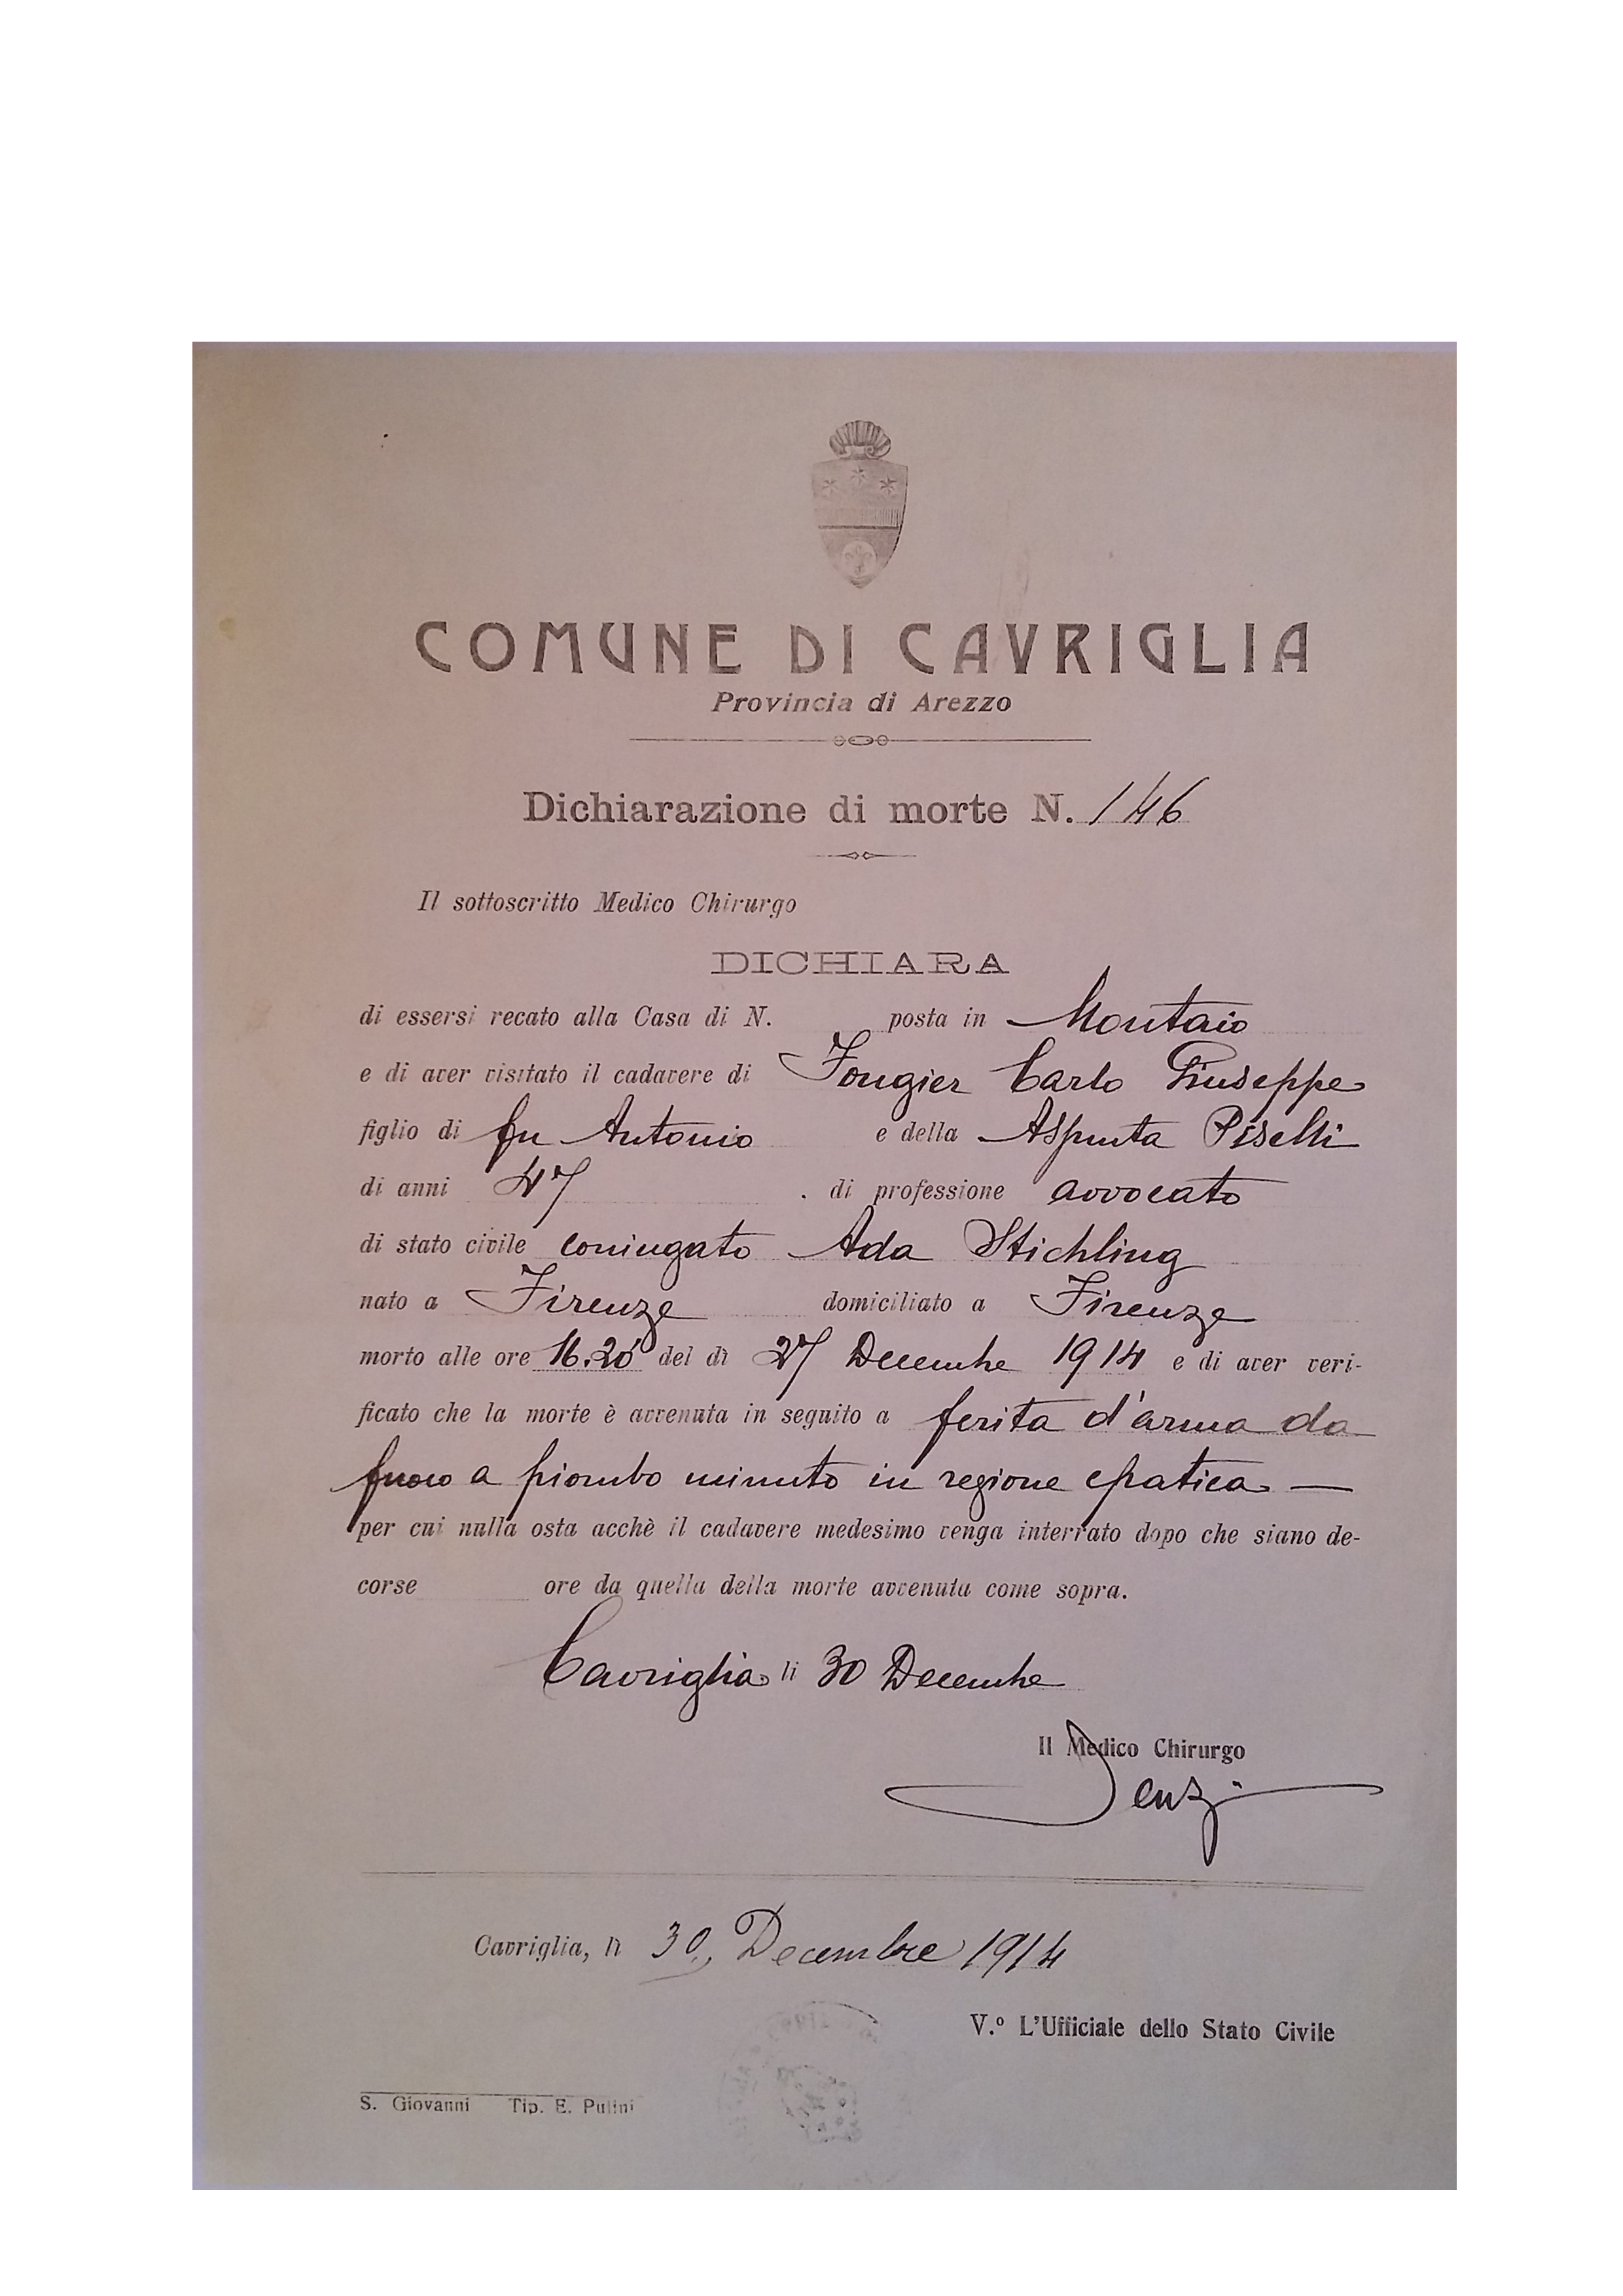 COMUNE DI CAVRIGLIA
Provincia di Arezzo
Dichiarazione di morte N. 146
Il sottoscritto Medico Chirurgo
DICHIARA
di essersi recato alla Casa di N. posta in Montaio
e di aver visitato il cadavere di Fougier Carlo Giuseppe
figlio di fu Antonio e della Assunta Piselli
di anni 47 . di professione avvocato
di stato civile coniugato Ada Stichling
nato a Firenze domiciliato a Firenze
morto alle ore 16.20 del dì 27 Decembre 1914 e di aver veri-
ficato che la morte è avvenuta in seguito a ferita d'arma da
fuoco a piombo minuto in regione epatica —
per cui nulla osta acchè il cadavere medesimo venga interrato dopo che siano de-
corse ore da quella della morte avvenuta come sopra.
Cavriglia li 30 Decembre
Il Medico Chirurgo
Cavriglia, lì 30, Decembre 1914
V.º L'Ufficiale dello Stato Civile
S. Giovanni Tip. E. Pulini